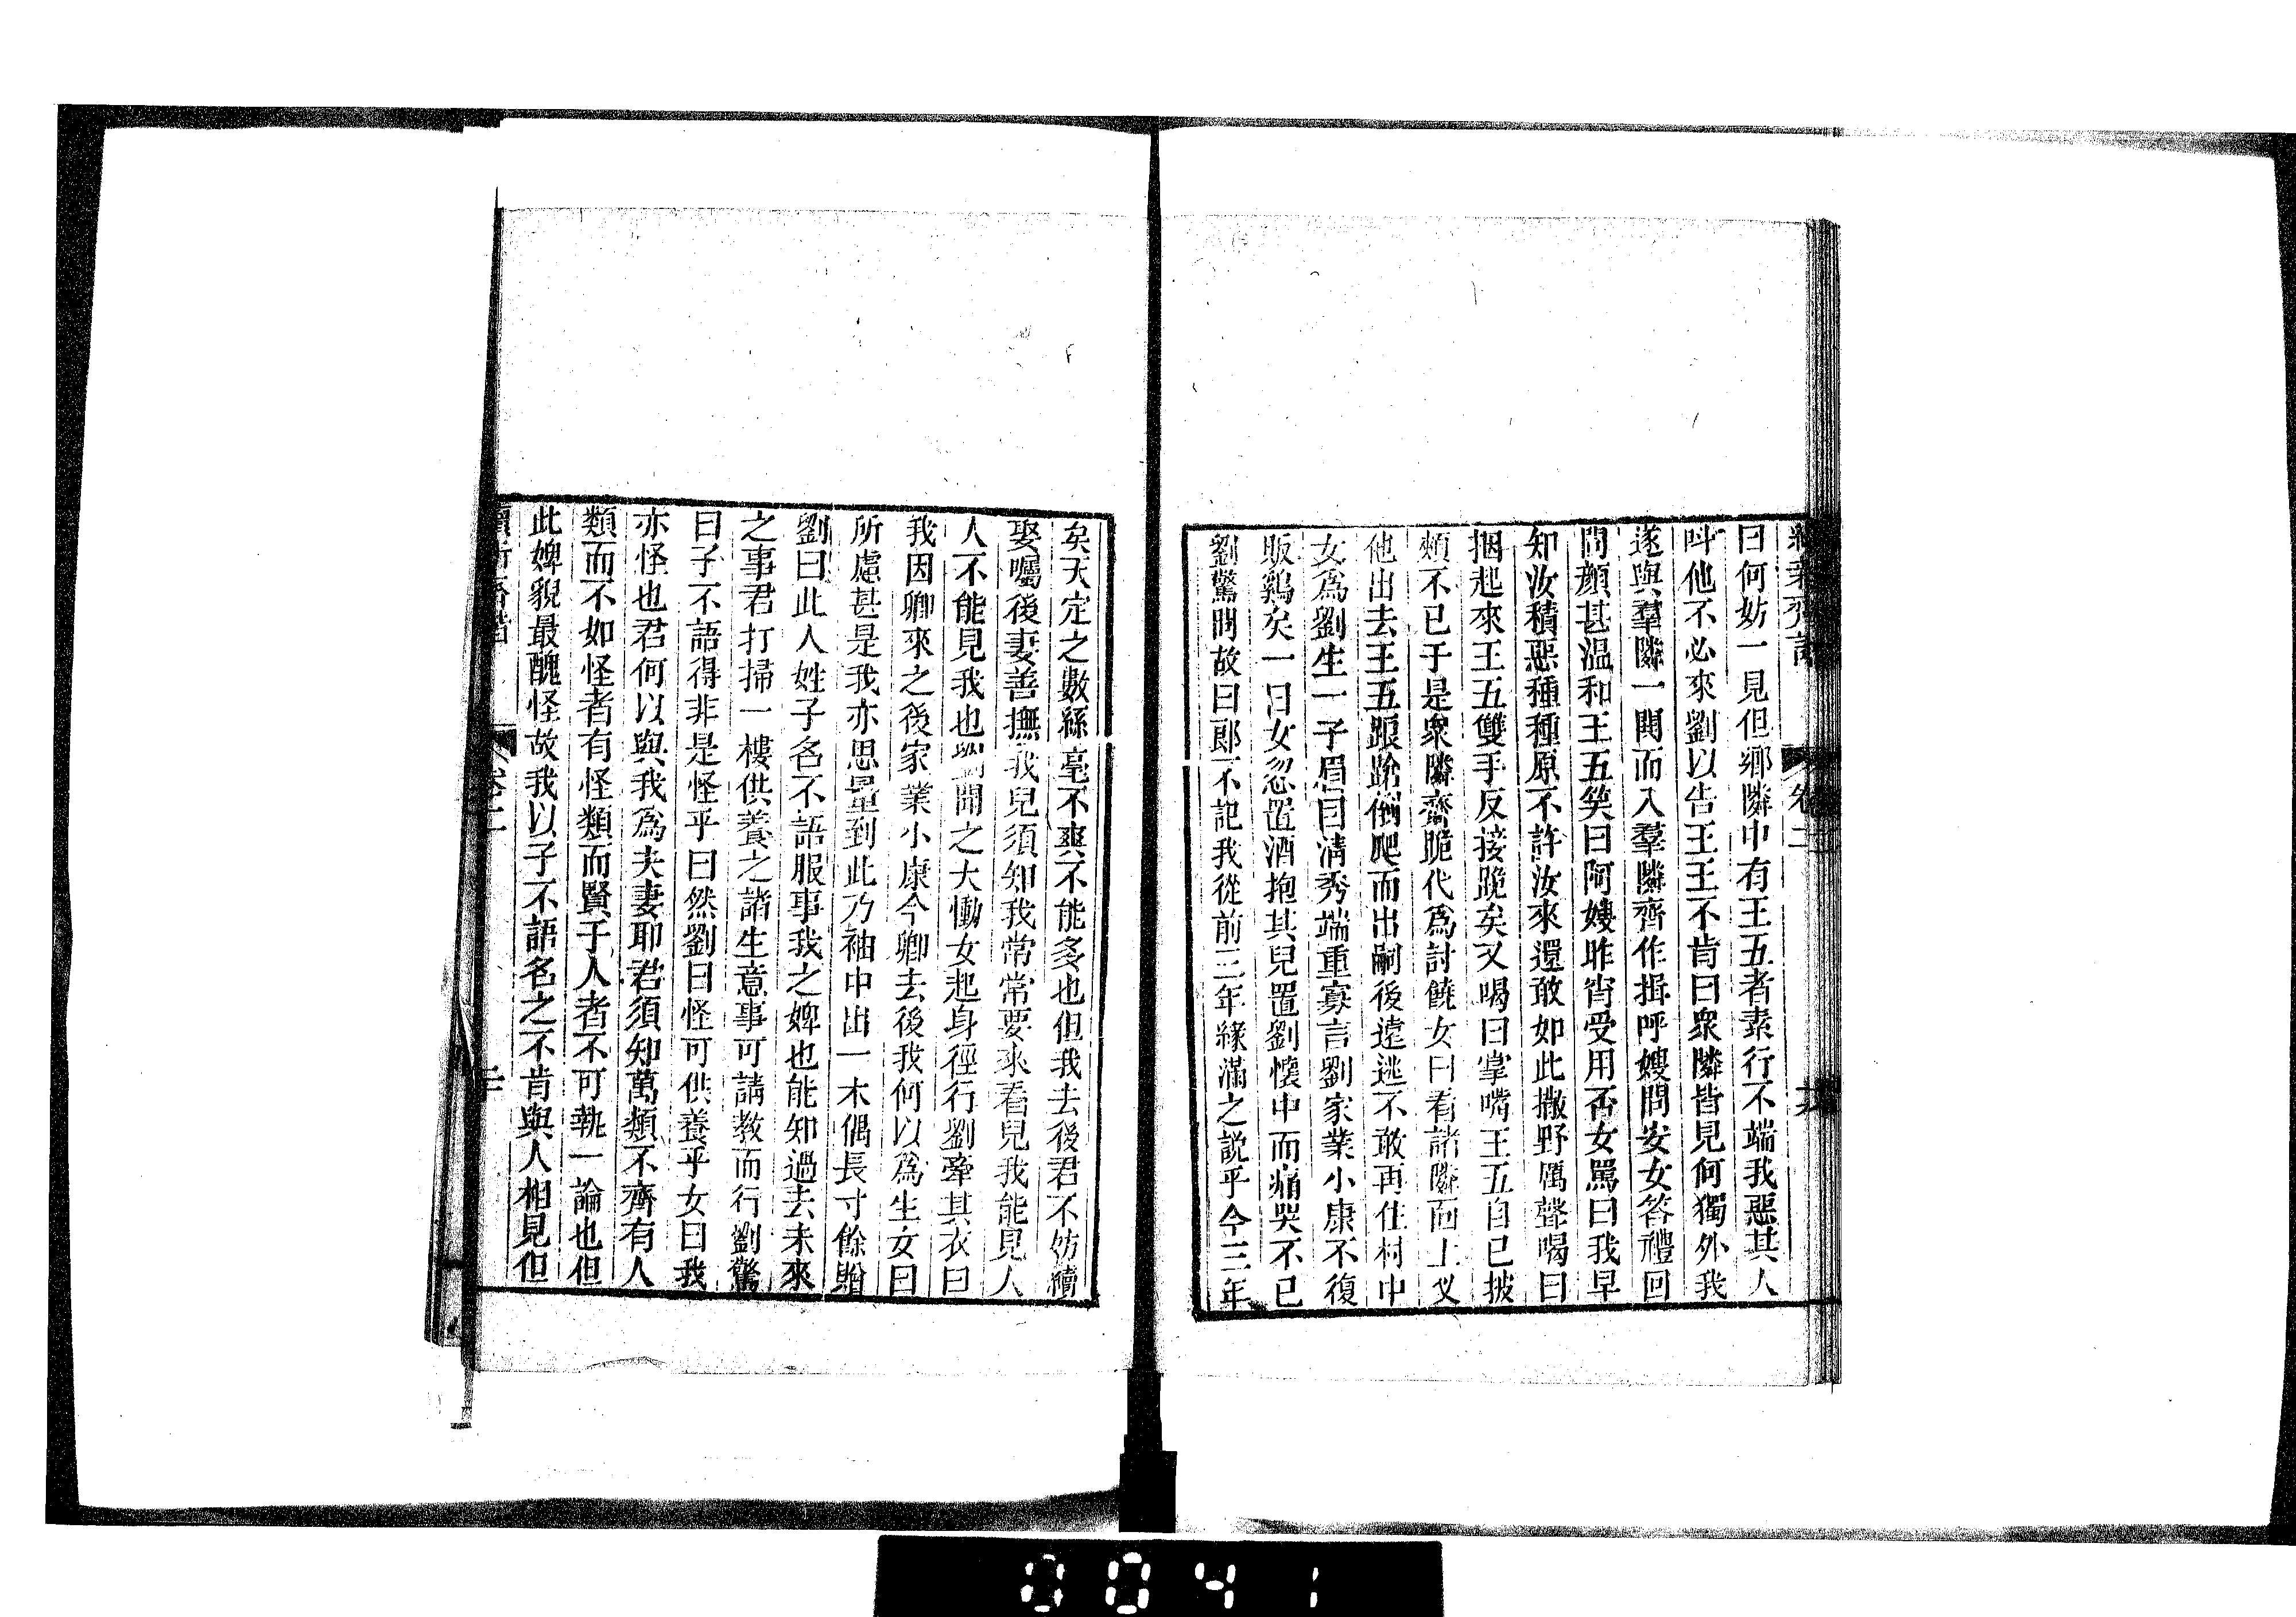 曰何妨一見但鄉隣中有王五者素行不端我惡其人
呌他不必來劉以告王王不肯曰衆隣皆見何獨外我
遂與羣隣一閧而入羣隣齊作揖呼嫂問安女答禮回
問顏甚溫和王五笑曰阿嫂昨宵受用否女罵曰我早
知汝積惡種種原不許汝來還敢如此撒野厲聲喝曰
捆起來王五雙手反接跪矣又喝曰掌嘴王五自已披
頰不已于是衆隣齊跪代爲討饒女曰看諸隣面上叉
他出去王五踉蹌倒爬而出嗣後遠逃不敢再住村中
女爲劉生一子眉目淸秀端重寡言劉家業小康不復
販鷄矣一日女忽置酒抱其兒置劉懷中而痛哭不已
劉驚問故曰郎不記我從前三年緣滿之說乎今三年
矣天定之數絲毫不爽不能多也但我去後君不妨續
娶囑後妻善撫我兒須知我常常要來看兒我能見人
人不能見我也劉聞之大慟女起身徑行劉牽其衣曰
我因卿來之後家業小康今卿去後我何以爲生女曰
所慮甚是我亦思量到此乃袖中出一木偶長寸餘贈
劉曰此人姓子名不語服事我之婢也能知過去未來
之事君打掃一樓供養之諸生意事可請教而行劉驚
曰子不語得非是怪乎曰然劉曰怪可供養乎女曰我
亦怪也君何以與我爲夫妻耶君須知萬類不齊有人
類而不如怪者有怪類而賢于人者不可執一論也但
此婢貌最醜怪故我以子不語名之不肯與人相見但
卷二
0041